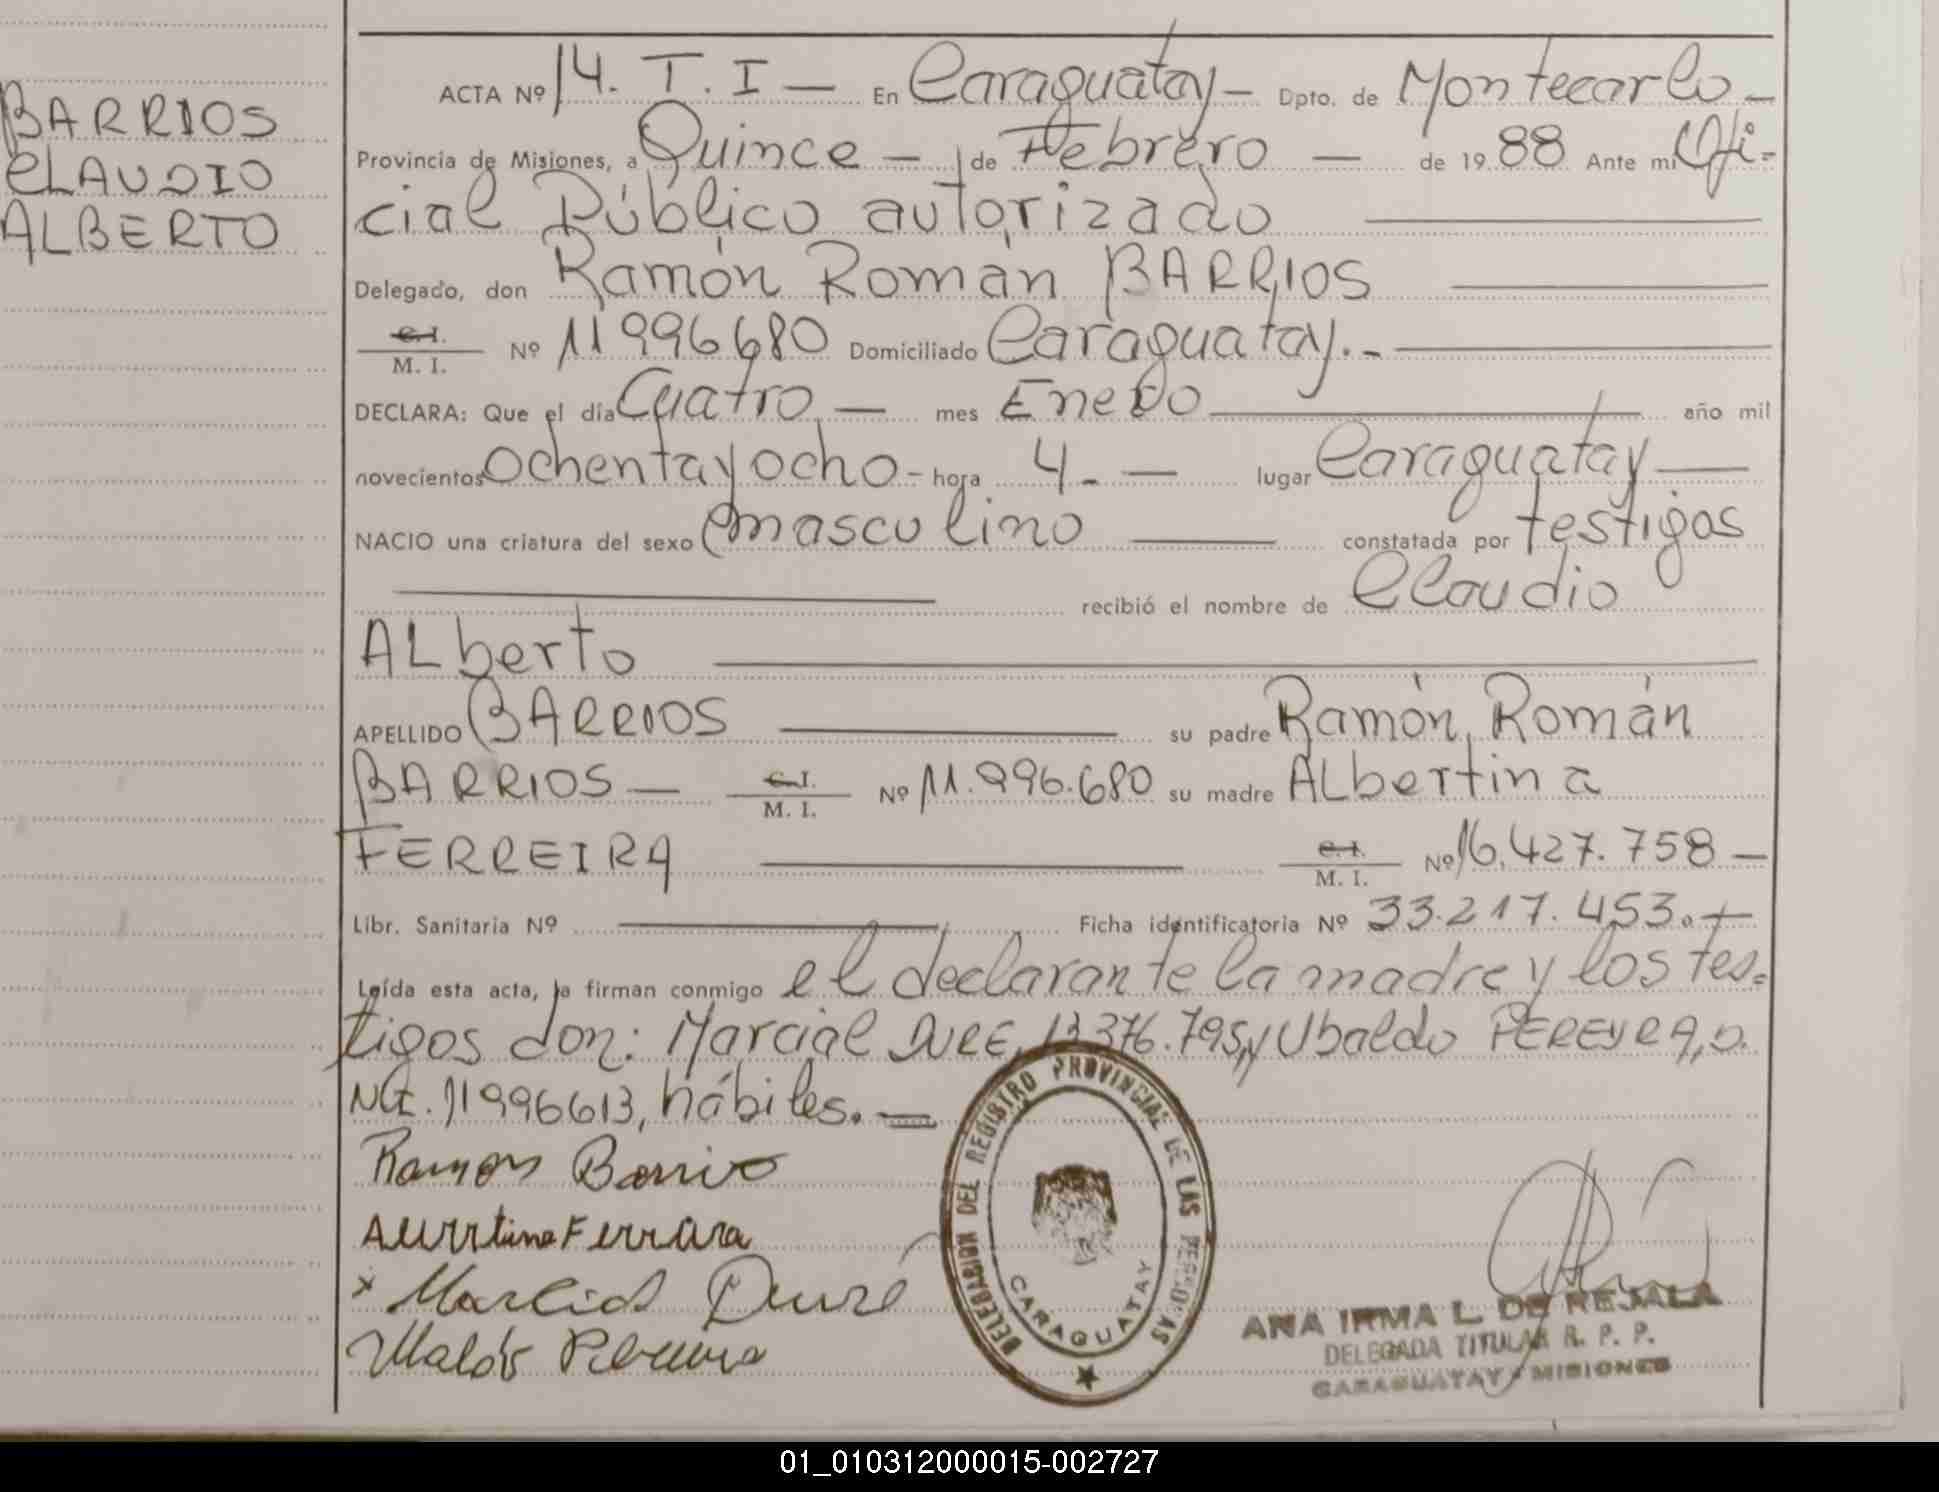 BARRIOS
CLAUDIO
ALBERTO
ACTA Nº 14. T. I — En Caraguatay — Dpto. de Montecarlo —
Provincia de Misiones, a Quince — de Febrero — de 19 88 Ante mi Ofi-
cial Público autorizado
Delegado, don Ramón Román BARRIOS
C. I.
M. I. Nº 11996680 Domiciliado Caraguatay. -
DECLARA: Que el día Cuatro — mes Enero año mil
novecientos ochenta y ocho - hora 4. — lugar Caraguatay —
NACIO una criatura del sexo masculino — constatada por testigos
recibió el nombre de Claudio
ALberto
APELLIDO BARRIOS su padre Ramón Román
BARRIOS — C. I.
M. I. Nº 11.996.680 su madre ALbertina
FERREIRA C. I.
M. I. Nº 16.427.758 —
Libr. Sanitaria Nº Ficha identificatoria Nº 33.217.453. —
Leída esta acta, la firman conmigo el declarante la madre y los tes=
tigos don: Marcial DURE, 13376.795, y Ubaldo PEREYRA, D.
NI. 11996613, hábiles. —
Ramon Barrio
Ferrara
x Marcial Duré
DELEGACION DEL REGISTRO PROVINCIAL DE LAS PERSONAS
CARAGUATAY
ANA IRMA L. DE REJALA
DELEGADA TITULAR R. P. P.
CARAGUATAY - MISIONES
01_010312000015-002727